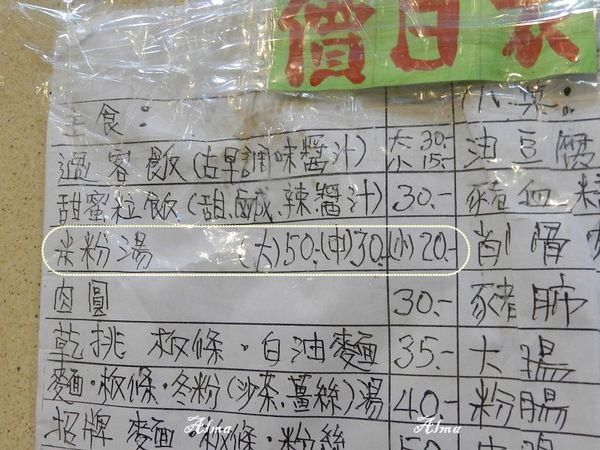 價目表
主食：
過客飯(古早調味醬汁) 大30.- 小15.- 油豆腐
甜蜜粒飯(甜.鹹.辣醬汁) 30.- 豬血
米粉湯 (大)50.-(中)30.-(小)20.-
肉圓 30.- 豬肺
乾挑 板條·白油麵 35.- 大腸
麵·板條·冬粉(沙茶.薑絲)湯 40.- 粉腸
招牌 麵·板條·粉絲
Alma Alma